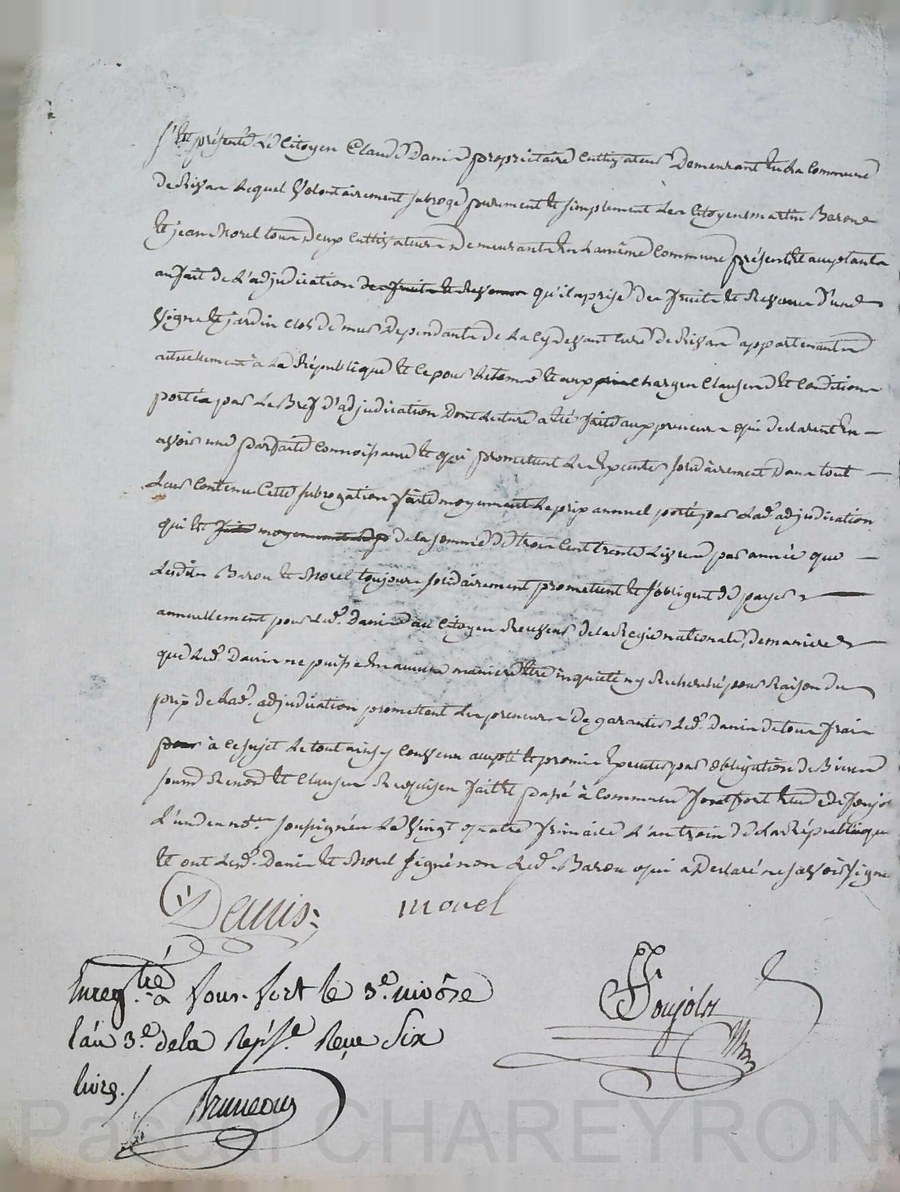 S'est présenté le Citoyen Claude Danis propriétaire Cultivateur Demeurant En la Commune
de Rivar lequel Volontairement subroge purement et simplement les Citoyens martin Barou
Et jean Morel tous Deux Cultivateurs Demeurants En la même Commune présents et acceptants
au fait de L'adjudication des fruits et Revenus qu'il a prise des fruits et Revenus D'une
Vigne et jardin clos de murs Dependants de la Cy devant Cure de Rivar appartenants
actuellement à La République Et Ce pour le tems Et aux Charges Clauses Et Conditions
portés par Le Bref D'adjudication Dont lecture a été faite aux preneurs qui déclarent En
avoir une parfaite Connoissance Et qui promettent de Executer solidairement Dans tout
Leur Contenu Cette subrogation faite moyennant Le prix annuel porté par Lad. adjudication
qui Est faite moyennant de la somme de trois Cent trente Livres par année que
Lesdits Barou Et Morel toujours solidairement promettent Et s'obligent de payer
annuellement pour Led. Danis au Citoyen Receveur de la Regie nationale, de maniere
que Led. Danis ne puisse En aucune maniere Etre inquieté ny Recherché pour Raison du
prix de Lad. adjudication promettant Les preneurs de garantir Led. Danis de tous frais
pour à Ce sujet Le tout ainsy Convenu accepté Et promis Executer par obligation de Biens
soumis Renon. Et Clauses Requises fait Et passé à Commune
L'un des no.res soussignés Le Vingt quatre frimaire L'an trois de La République
Et ont Lesd. Danis Et Morel signé non Led. Barou qui a Declaré ne savoir signer
Danis morel
Enregtré a le 3.e nivôse
l'an 3.e de la Repb.e Reçu Six
livres. Foujols
Bruneau
Pascal CHAREYRON